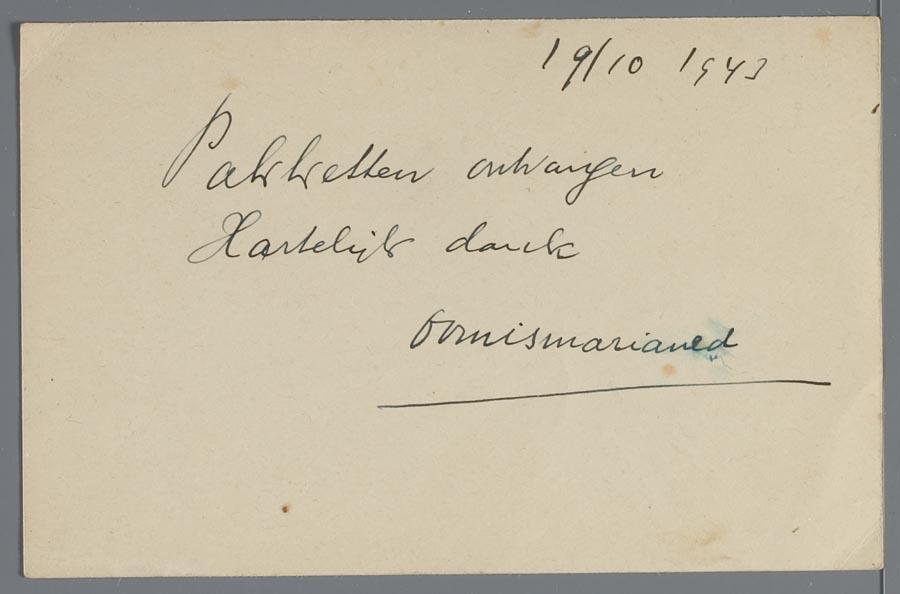 19/10 1943
Pakketten ontvangen
Hartelijk dank